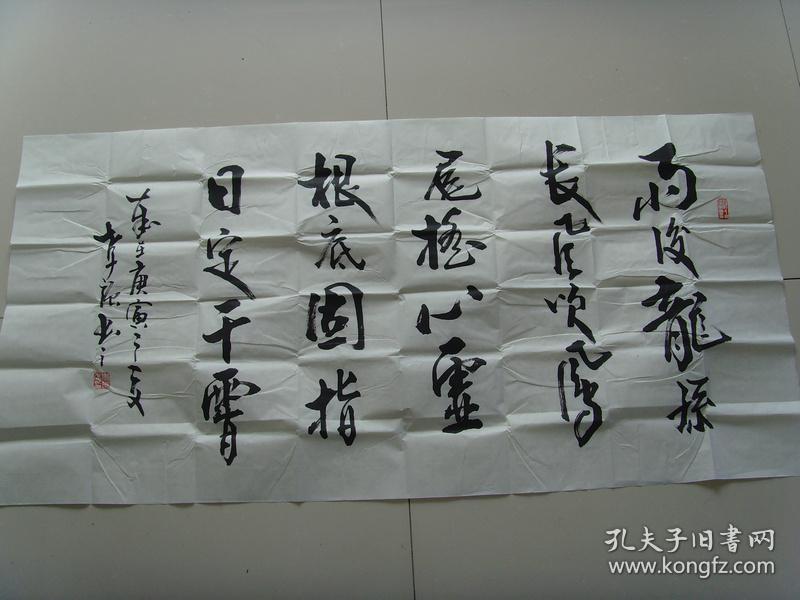 雨後龍孫
長風吹鳳
尾搖心靈
根底固指
日定干霄
歲在庚寅之夏
書之
孔夫子旧書网
www.kongfz.com